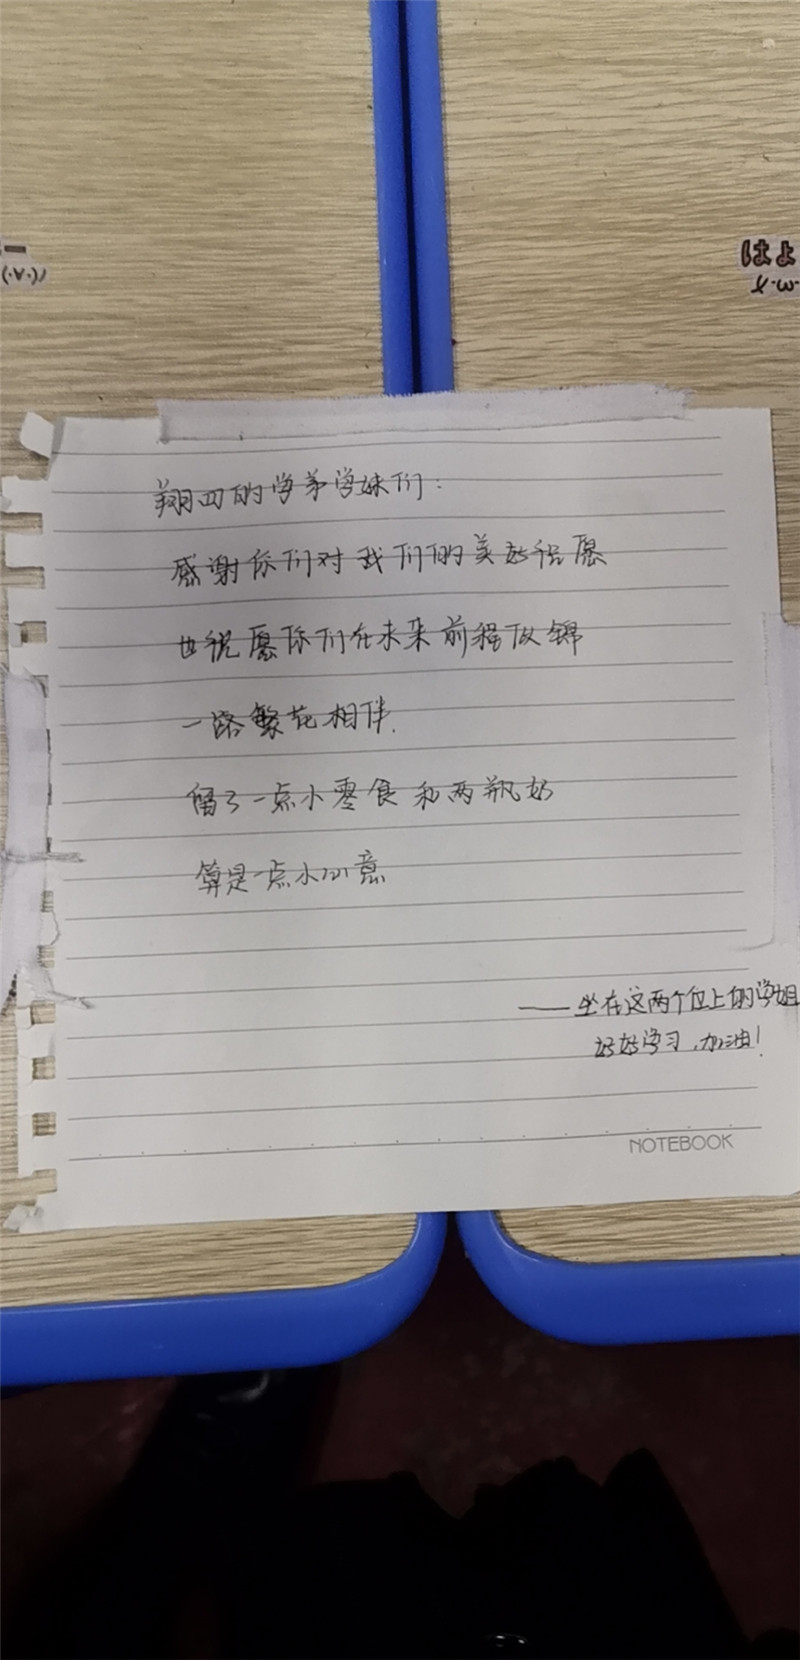 一
はよ
翔四的学弟学妹们：
感谢你们对我们的美好祝愿
也祝愿你们在未来前程似锦
一路繁花相伴.
留了一点小零食和两瓶奶
算是一点小心意
——坐在这两个位上的学姐
好好学习,加油！
NOTEBOOK